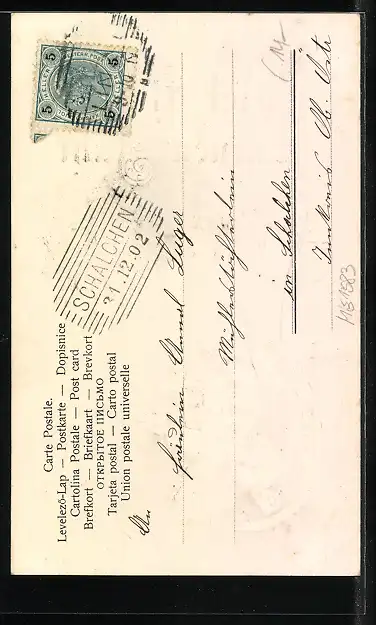 Carte Postale.
Levelező-Lap — Postkarte — Dopisnice
Cartolina Postale — Post card
Brefkort — Briefkaart — Brevkort
ОТКРЫТОЕ ПИСЬМО
Tarjeta postal — Carto postal
Union postale universelle
5 5
5 5
SCHALCHEN
31.12.02
An
Fräulein Luger
in Schalchen
MB1583